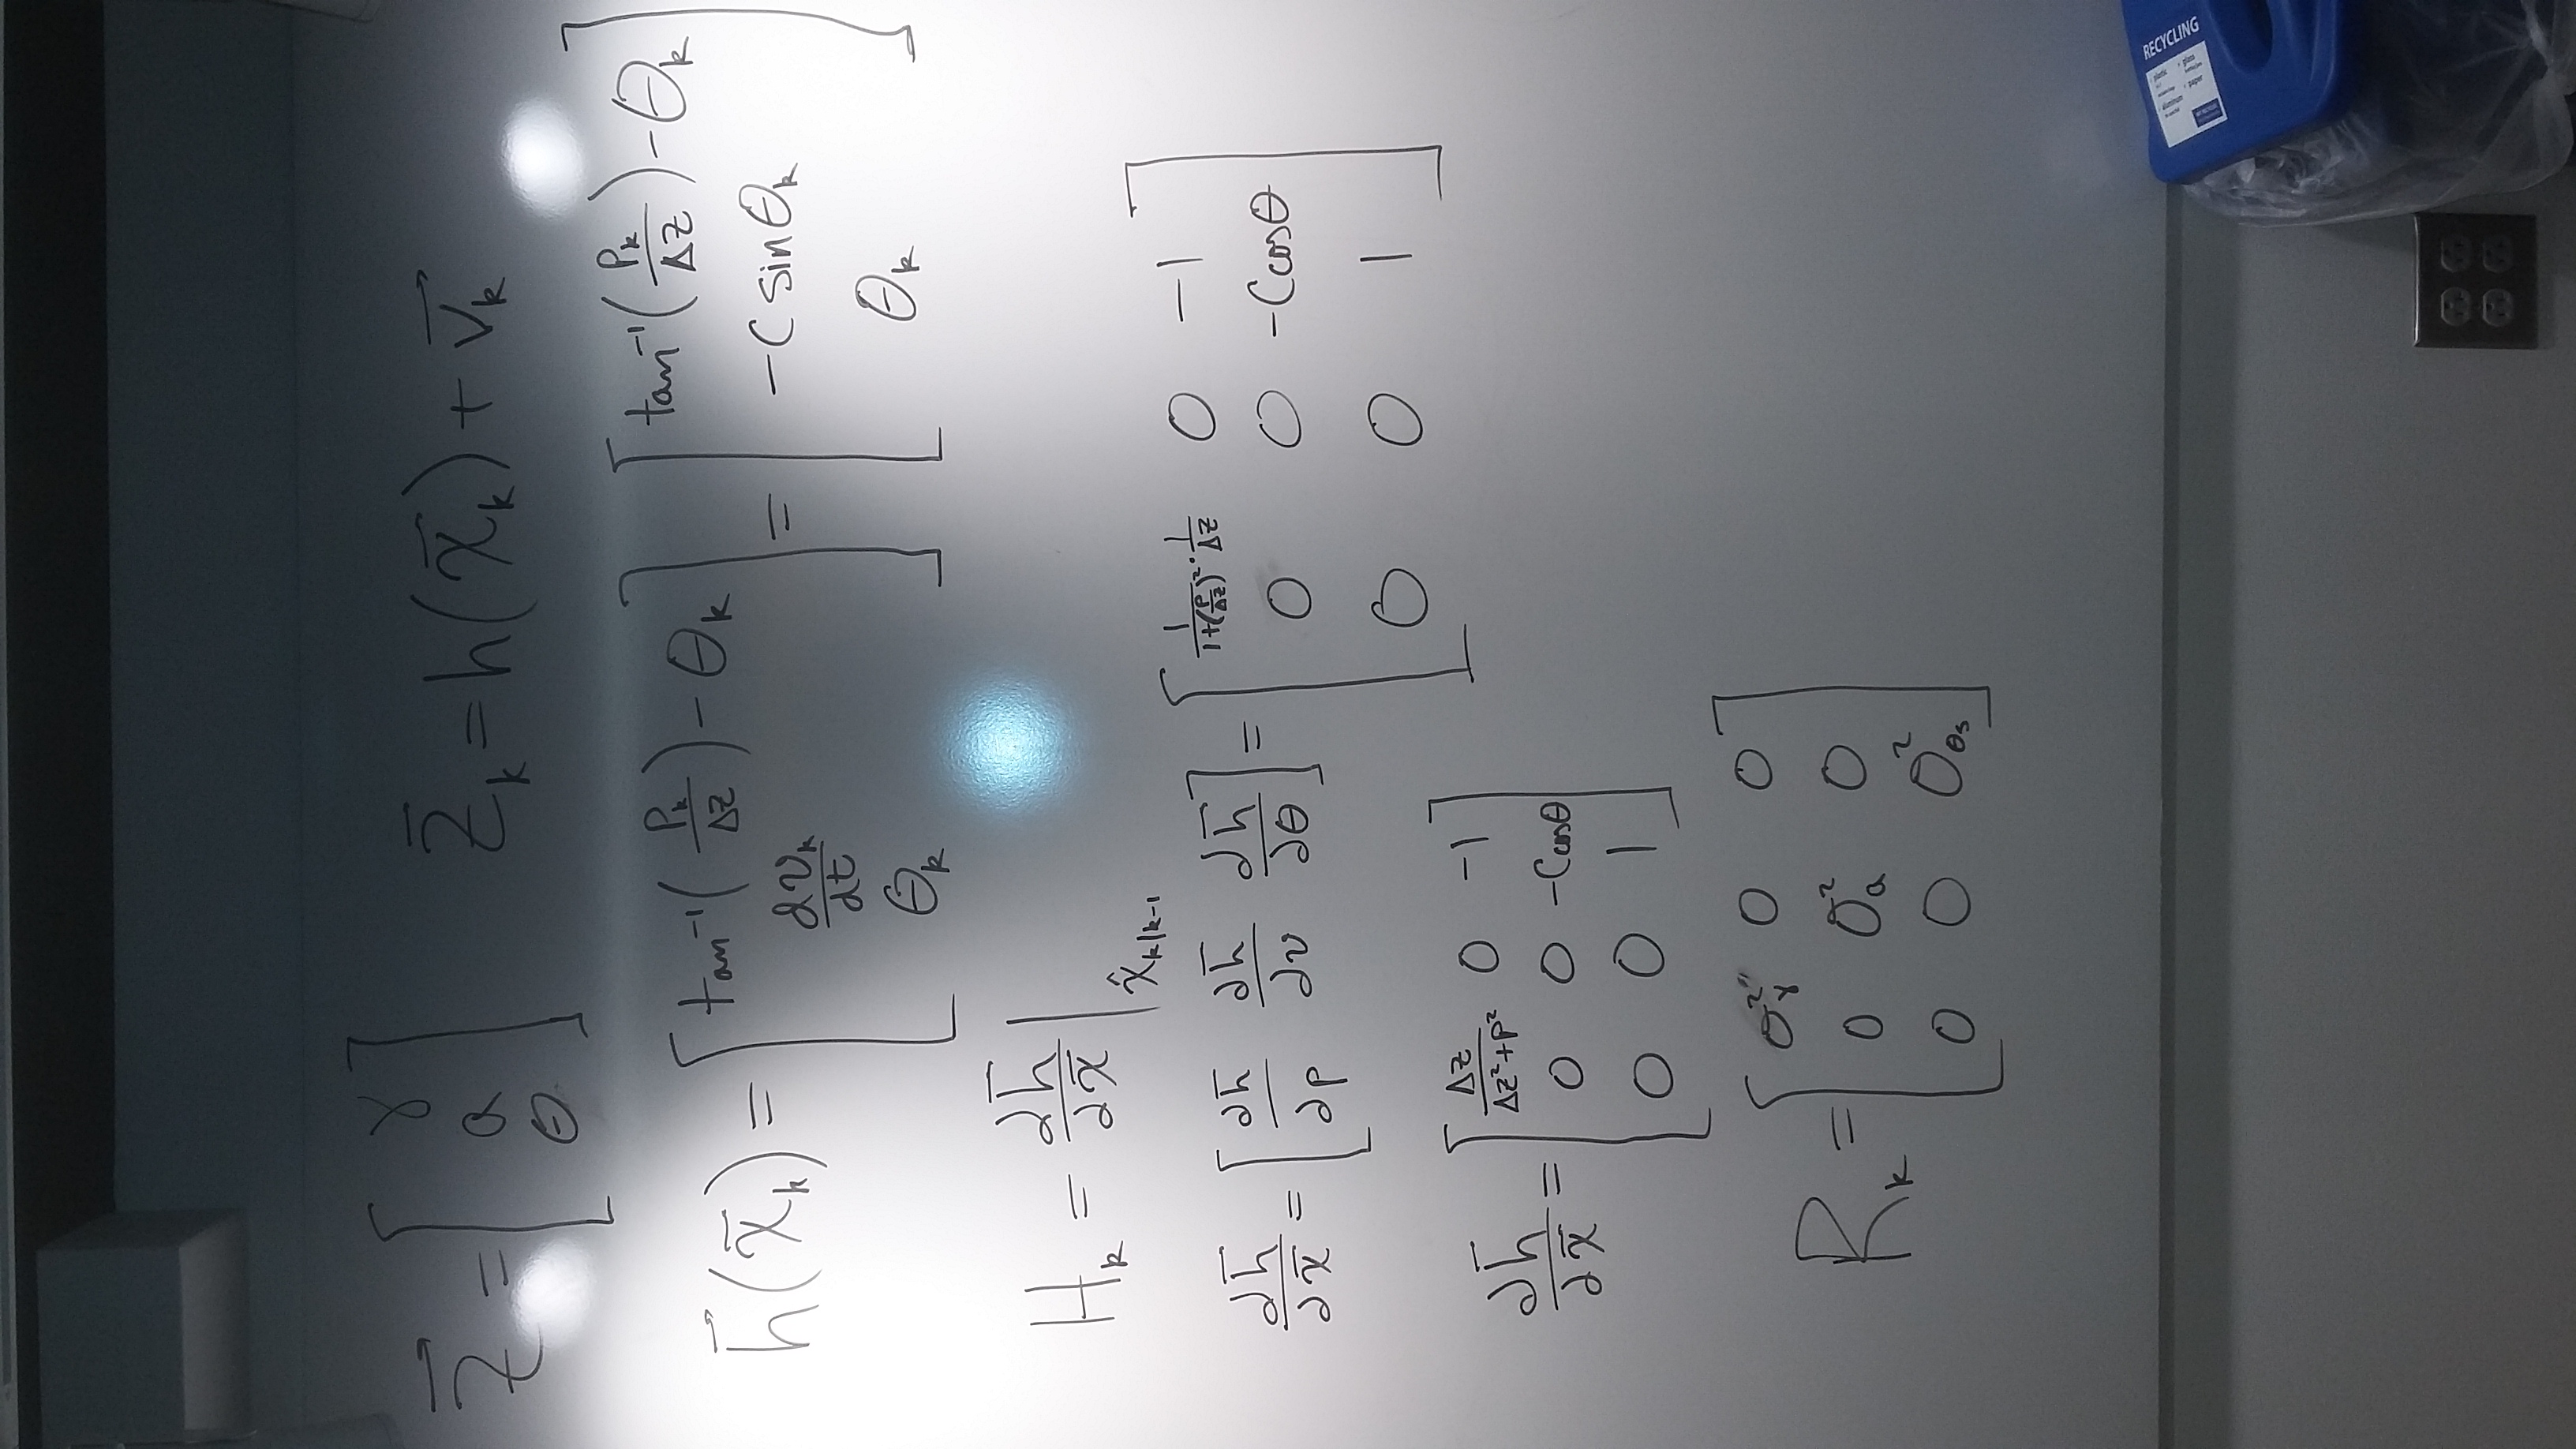 z⃗ = [ γ ; a ; θ ]    z̄_k = h(x̄_k) + v⃗_k
h⃗(x̄_k) = [ tan⁻¹(P_k/ΔZ) − θ_k ; dv_k/dt ; θ_k ] = [ tan⁻¹(P_k/ΔZ) − θ_k ; −C sinθ_k ; θ_k ]
H_k = ∂h̄/∂x̄ |_x̂_k|k-1
∂h̄/∂x̄ = [ ∂h̄/∂p  ∂h̄/∂v  ∂h̄/∂θ ] = [ 1/(1+(P/ΔZ)²)·1/ΔZ  0  −1 ; 0  0  −C cosθ ; 0  0  1 ]
∂h̄/∂x̄ = [ ΔZ/(ΔZ²+P²)  0  −1 ; 0  0  −C cosθ ; 0  0  1 ]
R_k = [ σ²_γ  0  0 ; 0  σ²_a  0 ; 0  0  σ²_θs ]
RECYCLING